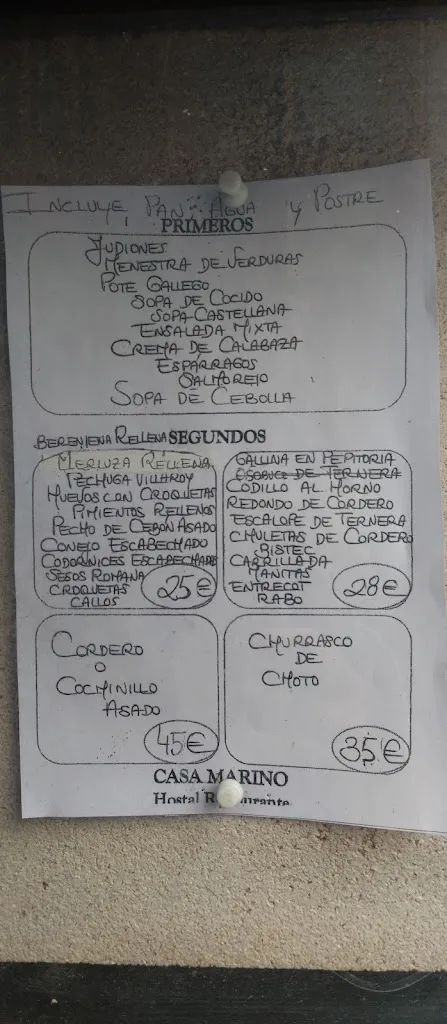 INCLUYE, PAN, AGUA Y POSTRE
PRIMEROS
JUDIONES
MENESTRA DE VERDURAS
POTE GALLEGO
SOPA DE COCIDO
SOPA CASTELLANA
ENSALADA MIXTA
CREMA DE CALABAZA
ESPARRAGOS
SALMOREJO
SOPA DE CEBOLLA
BERENJENA RELLENA SEGUNDOS
MERLUZA RELLENA
PECHUGA VILLAROY
HUEVOS CON CROQUETAS
PIMIENTOS RELLENOS
PECHO DE CEBON ASADO
CONEJO ESCABECHADO
CODORNICES ESCABECHADAS
SESOS ROMANA
CROQUETAS
CALLOS
25€
GALLINA EN PEPITORIA
OSOBUCO DE TERNERA
CODILLO AL HORNO
REDONDO DE CORDERO
ESCALOPE DE TERNERA
CHULETAS DE CORDERO
BISTEC
CARRILLADA
MANITAS
ENTRECOT
RABO
28€
CORDERO
O
COCHINILLO
ASADO
45€
CHURRASCO
DE
CHOTO
35€
CASA MARINO
Hostal Restaurante